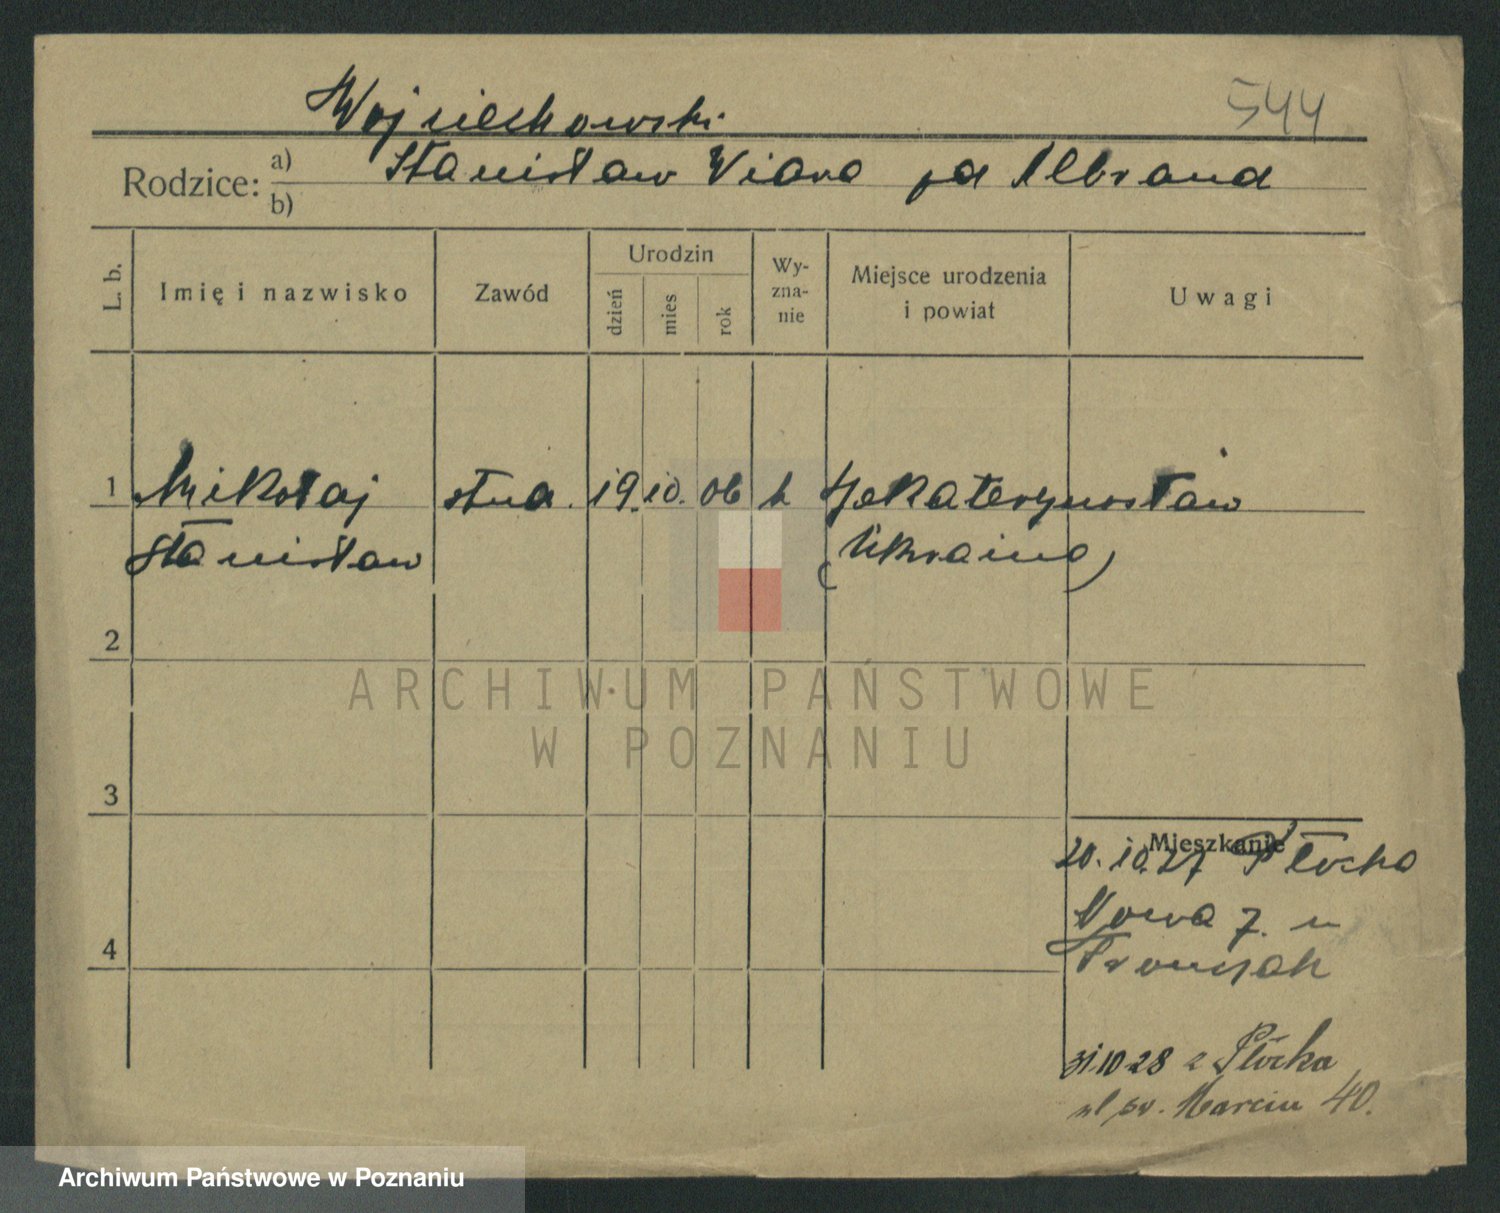 Wojciechowski 544
Rodzice: a) Stanisław Wiara
b)
L. b. Imię i nazwisko Zawód Urodzin dzień mies rok Wy-zna-nie Miejsce urodzenia i powiat Uwagi
1 Mikołaj stud. 19. 10. 06 k Jekaterynosław
Stanisław (Ukraina)
2
ARCHIWUM PAŃSTWOWE
W POZNANIU
3
Mieszkanie
20.10.27 Płocka
Nowa 7. u
4
31.10.28 z Płocka
ul św. Marcin 40.
Archiwum Państwowe w Poznaniu